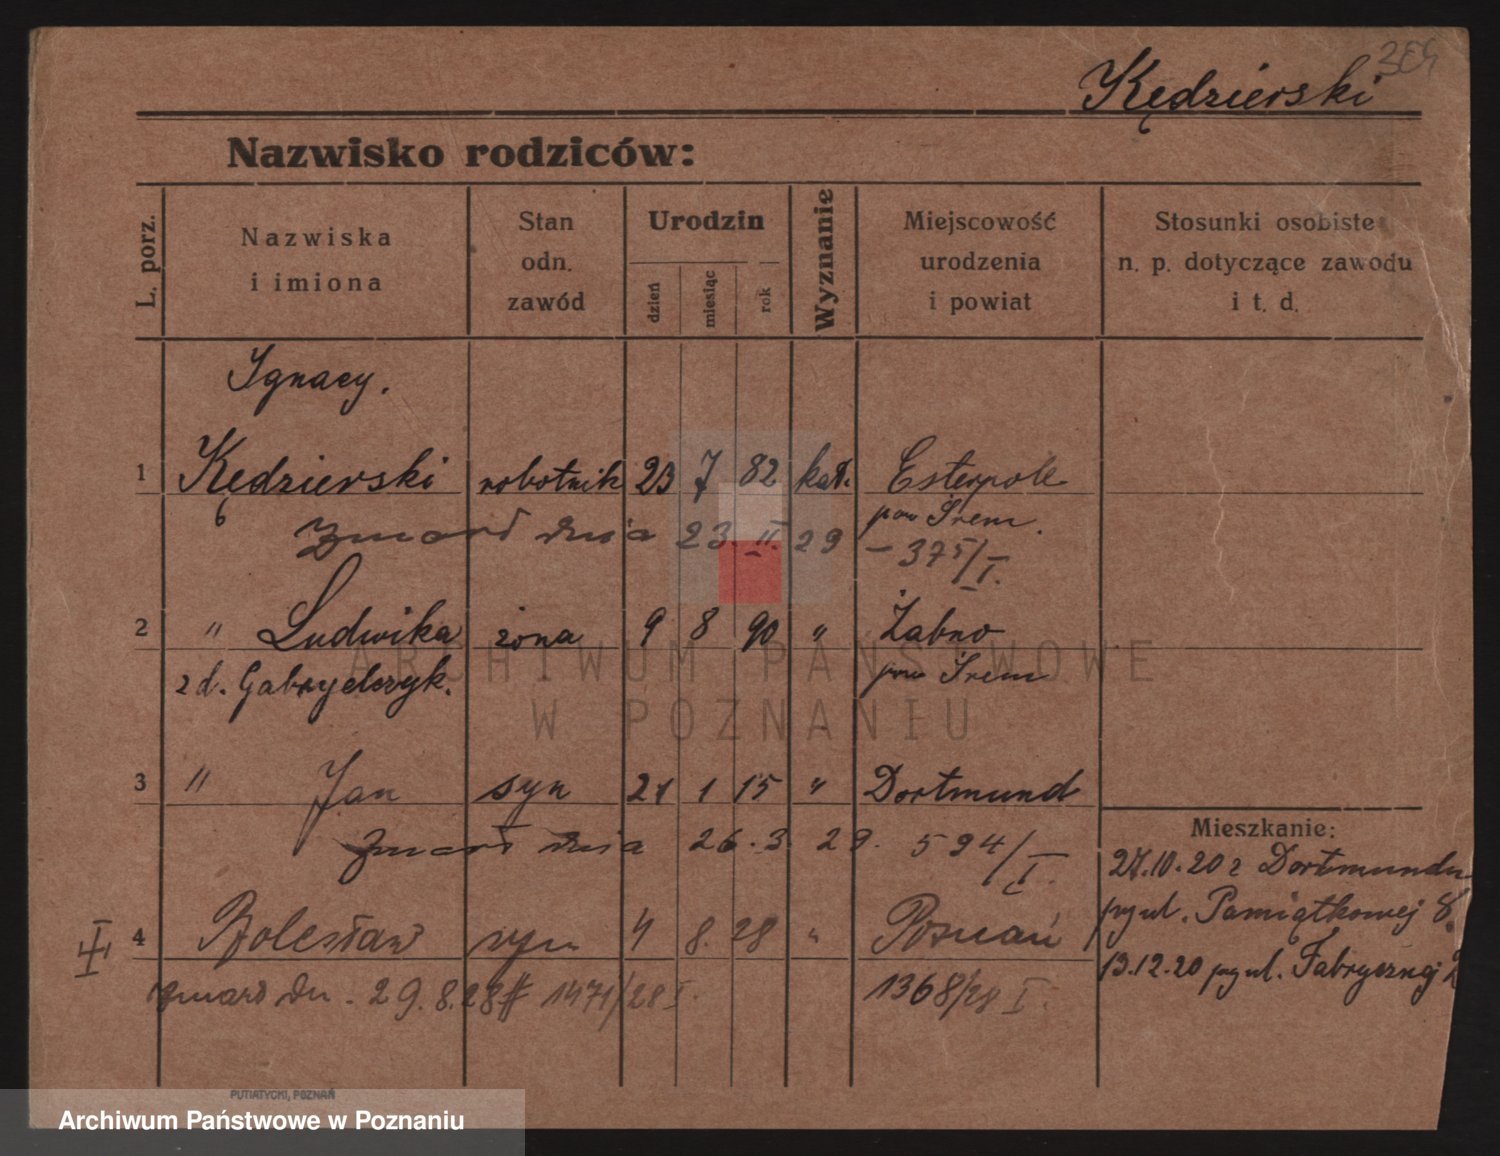 Kędzierski
Nazwisko rodziców:
L. porz.
Nazwiska
i imiona
Stan
odn.
zawód
Urodzin
dzień
miesiąc
rok
Wyznanie
Miejscowość
urodzenia
i powiat
Stosunki osobiste
n. p. dotyczące zawodu
i t. d.
Ignacy.
1 Kędzierski robotnik 23 7 82 kat. Esterpole
pow Śrem.
Zmarł dnia 23. II. 29 – 375/I.
2 " Ludwika żona 9 8 90 " Żabno
z d. Gabryelczyk. pow Śrem
3 " Jan syn 21 1 15 " Dortmund
zmarł dnia 26.3 29. 594/I.
Mieszkanie:
27.10.20 z Dortmundu
przy ul. Pamiątkowej 8.
13.12.20 przy ul. Fabrycznej 2
4 Bolesław syn 4 8. 28 " Poznań
zmarł dn. 29.8.28 1471/28 I. 1368/28 I.
PUTIATYCKI, POZNAŃ
ARCHIWUM PAŃSTWOWE
W POZNANIU
Archiwum Państwowe w Poznaniu